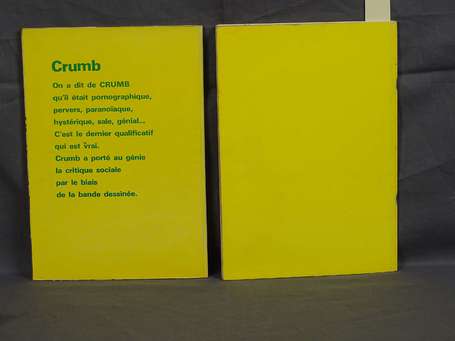 Crumb
On a dit de CRUMB
qu'il était pornographique,
pervers, paranoïaque,
hystérique, sale, génial...
C'est le dernier qualificatif
qui est vrai.
Crumb a porté au génie
la critique sociale
par le biais
de la bande dessinée.